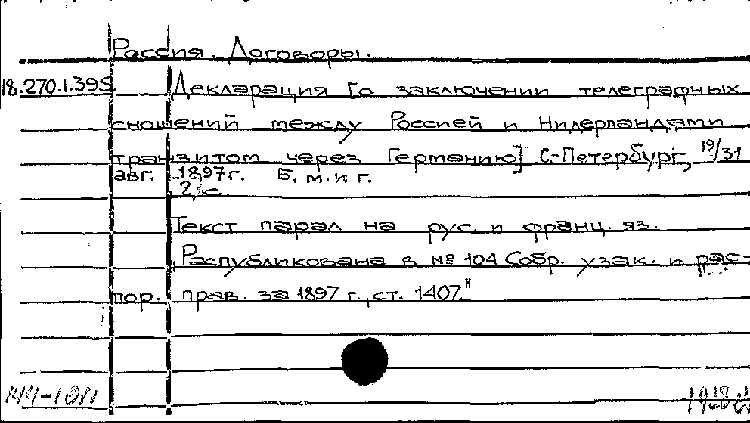 Россия. Договоры.
18.270.1.395 Декларация [о заключении телеграфных
сношений между Россией и Нидерландами
транзитом через Германию] С-Петербург, 19/31
авг. 1897 г. Б. м. и г.
2 с.
Текст парал на рус. и франц. яз.
"Распубликована в № 104 Собр. узак. и рас-
пор. прав. за 1897 г., ст. 1407."